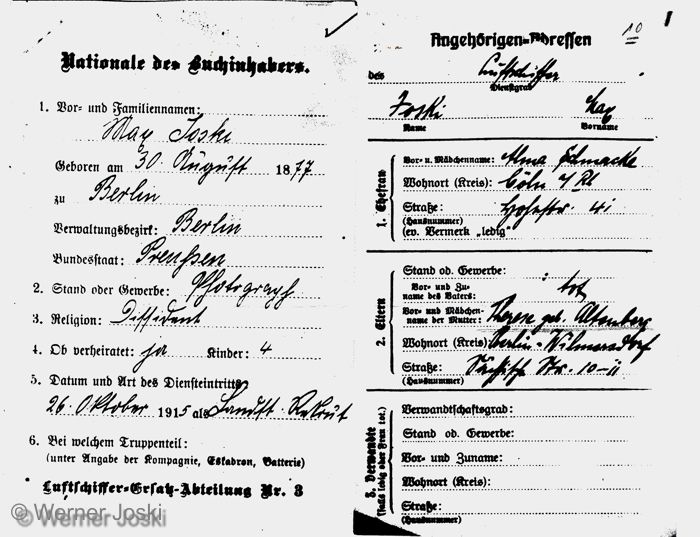 Nationale des Buchinhabers.
1. Vor- und Familiennamen:
Max Joski
Geboren am 30 August 1877
zu Berlin
Verwaltungsbezirk: Berlin
Bundesstaat: Preußen
2. Stand oder Gewerbe: Photograph
3. Religion: Dissident
4. Ob verheiratet: ja Kinder: 4
5. Datum und Art des Diensteintritts
26. Oktober 1915 als Landst. Rekrut
6. Bei welchem Truppenteil:
(unter Angabe der Kompagnie, Eskadron, Batterie)
Luftschiffer-Ersatz-Abteilung Nr. 3
10
Angehörigen-Adressen
des Luftschiffer
Dienstgrad
Joski Max
Name Vorname
1. Ehefrau
Vor- u. Mädchenname: Alma Schmacke
Wohnort (Kreis): Cöln a/Rh
Straße: Hohestr. 41
(Hausnummer)
(ev. Vermerk „ledig")
2. Eltern
Stand od. Gewerbe:
Vor- und Zu-
name des Vaters: tot
Vor- und Mädchen-
name der Mutter: Therese geb. Altenberg
Wohnort (Kreis): Berlin-Wilmersdorf
Straße: Sächsische Str. 10-11
(Hausnummer)
3. Verwandte
(falls ledig oder Frau tot.)
Verwandtschaftsgrad:
Stand od. Gewerbe:
Vor- und Zuname:
Wohnort (Kreis):
Straße:
(Hausnummer)
© Werner Joski
© Werner Joski